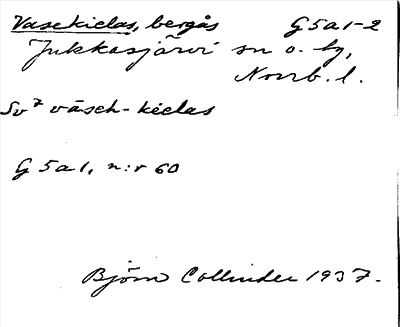 Vasekielas, bergås G5a1-2
Jukkasjärvi sn o. by,
Norrb. l.
Sv⁷ väsch-kielas
G5a1, n:r 60
Björn Collinder 1937.